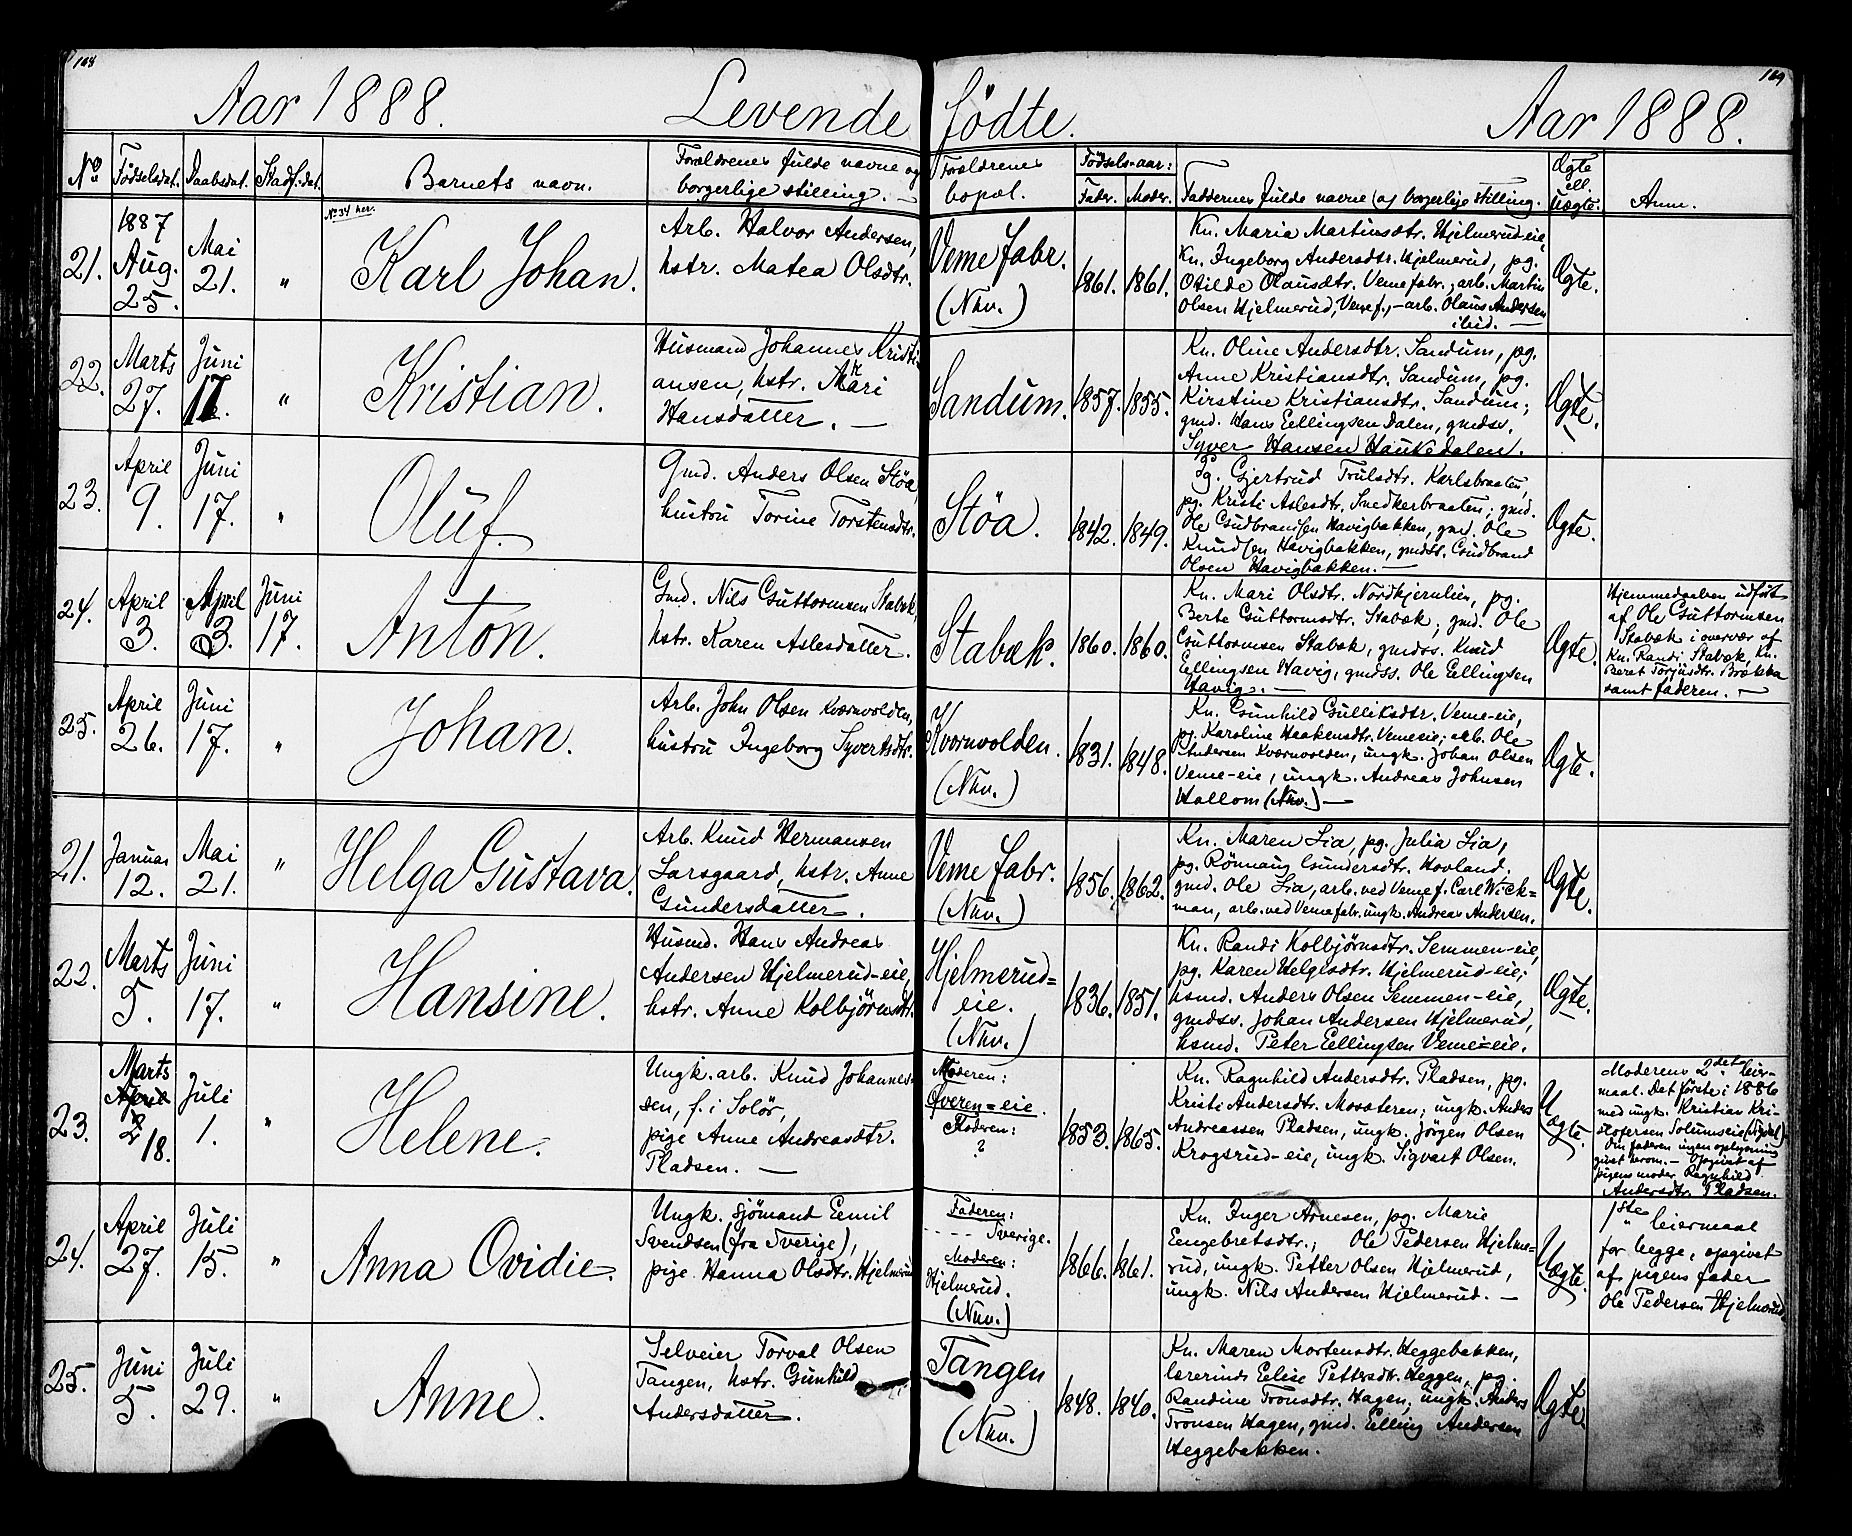 168
169
Aar 1888. Levende fødte. Aar 1888.
No. Fødselsdat. Daabsdat. Stadf.dat. Barnets navn. Forældrenes fulde navne og borgerlige stilling. Forældrenes bopæl. Fødsels-aar: Fader. Moder. Faddernes fulde navne og borgerlige stilling. Ægte ell. Uægte. Anm.
21. 1887 Aug. 25. Mai 21. "
No 34 her.
Karl Johan.
Arb. Halvor Andersen,
hstr. Matea Olsdtr.
Veme fabr.
(Nkv.)
1861. 1861.
Kn. Maria Martinsdtr. Hjelmerud-eie,
Kn. Ingeborg Andersdtr. Hjelmerud, pg.
Otilde Olausdtr. Vemefabr.; arb. Martin
Olsen Hjelmerud, Vemef., arb. Olaus Andersen
ibid. —
Ægte.
22. Marts 27. Juni 17. "
Kristian.
Husmand Johannes Kristi-
ansen, hstr. Mari
Hansdatter. —
Sandum.
1857. 1855.
Kn. Oline Andersdtr. Sandum, pg.
Anne Kristiansdtr. Sandum, pg.
Kirstine Kristiansdtr. Sandum;
gmd. Hans Ellingsen Dalen, gmdss.
Syver Hansen Haukedalen.
Ægte.
23. April 9. Juni 17. "
Oluf.
Gmd. Anders Olsen Støa,
hustru Torine Torstensdtr.
Støa.
1842. 1849.
Pg. Gjertrud Trulsdtr. Karlsbraaten,
pg. Kristi Aslesdtr. Snedkerbraaten; gmd.
Ole Gudbrandsen Havigbakken, gmd. Ole
Knudsen Havigbakken, gmdss. Gudbrand
Olsen Havigbakken. —
Ægte.
24. April 3. April 3. Juni 17.
Anton.
Gmd. Nils Guttormsen Stabæk,
hstr. Karen Aslesdatter.
Stabæk.
1860. 1860.
Kn. Mari Olsdtr. Nordkjernlien, pg.
Berte Guttormsdtr. Stabæk; gmd. Ole
Guttormsen Stabæk, gmdss. Knud
Ellingsen Havig, gmdss. Ole Ellingsen
Havig. —
Ægte.
Hjemmedaaben udført
af Ole Guttormsen
Stabæk i overvær af
Kn. Randi Stabæk, Kn.
Beret Torjusdtr. Brække
samt faderen. —
25. April 26. Juni 17. "
Johan.
Arb. John Olsen Kværnvolden,
hustru Ingeborg Syvertsdtr.
Kværnvolden.
(Nkv.)
1831. 1848.
Kn. Gunhild Gulliksdtr. Veme-eie,
pg. Karoline Haakensdtr. Vemeeie; arb. Ole
Andersen Kværnvolden, ungk. Johan Olsen
Veme-eie, ungk. Andreas Johnsen
Hallom (Nkv.) —
Ægte.
21. Januar 12. Mai 21. "
Helga Gustava.
Arb. Knud Hermansen
Larsgaard, hstr. Anne
Gundersdatter.
Veme fabr.
(Nkv.)
1856. 1862.
Kn. Maren Lia, pg. Julia Lia,
pg. Rønnaug Gundersdtr. Hovland;
gmd. Ole Lia, arb. ved Vemef. Carl Wick-
man, arb. ved Vemefabr. ungk. Andreas Andersen.
Ægte.
22. Marts 5. Juni 17. "
Hansine.
Husmd. Hans Andreas
Andersen Hjelmerud-eie,
hstr. Anne Kolbjørnsdtr.
Hjelmerud-
eie.
(Nkv.)
1836. 1851.
Kn. Randi Kolbjørnsdtr. Semmen-eie,
pg. Karen Helgesdtr. Hjelmerud-eie;
hsmd. Anders Olsen Semmen-eie,
gmdss. Johan Andersen Hjelmerud,
hsmd. Peter Ellingsen Veme-eie.
Ægte.
23. Marts April 18. Juli 1. "
Helene.
Ungk. arb. Knud Johannes-
sen, f. i Solør,
pige Anne Andreasdtr.
Pladsen. —
Moderen:
Averen-eie.
Faderen:
?
1853. 1865.
Kn. Ragnhild Andersdtr. Pladsen, pg.
Kristi Andersdtr. Mosæteren; ungk. Anders
Andreassen Pladsen, ungk. Jørgen Olsen
Krogsrud-eie, ungk. Sigvart Olsen.
Uægte.
Moderens 2det leier-
maal. Det første i 1886
med ungk. Kristian Kri-
stofersen Solumseie
Om faderen ingen oplysning
givet herom. — Opgivet af
pigens moder Ragnhild
Andersdtr. Pladsen.
24. April 27. Juli 15. "
Anna Ovidie.
Ungk. sjømand Emil
Svendsen (fra Sverige),
pige Hanna Olsdtr. Hjelmerud
Faderen:
---- Sverige.
Moderen:
Hjelmerud.
(Nkv.)
1866. 1861.
Kn. Inger Arnesen, pg. Marie
Engebretsdtr.; Ole Pedersen Hjelme-
rud, ungk. Petter Olsen Hjelmerud,
ungk. Nils Andersen Hjelmerud. —
Uægte.
1ste leiermaal
for begge, opgivet
af pigens fader
Ole Pedersen Hjelmerud
25. Juni 5. Juli 29. "
Anne.
Selveier Torval Olsen
Tangen, hstr. Gunhild
Andersdatter.
Tangen
(Nkv.)
1848. 1840.
Kn. Maren Mortensdtr. Heggebakken,
lærerinde Elise Pettersdtr. Heggen, pg.
Randine Tronsdtr. Hagen; ungk. Anders
Tronsen Hagen, gmd. Elling Andersen
Heggebakken.
Ægte.